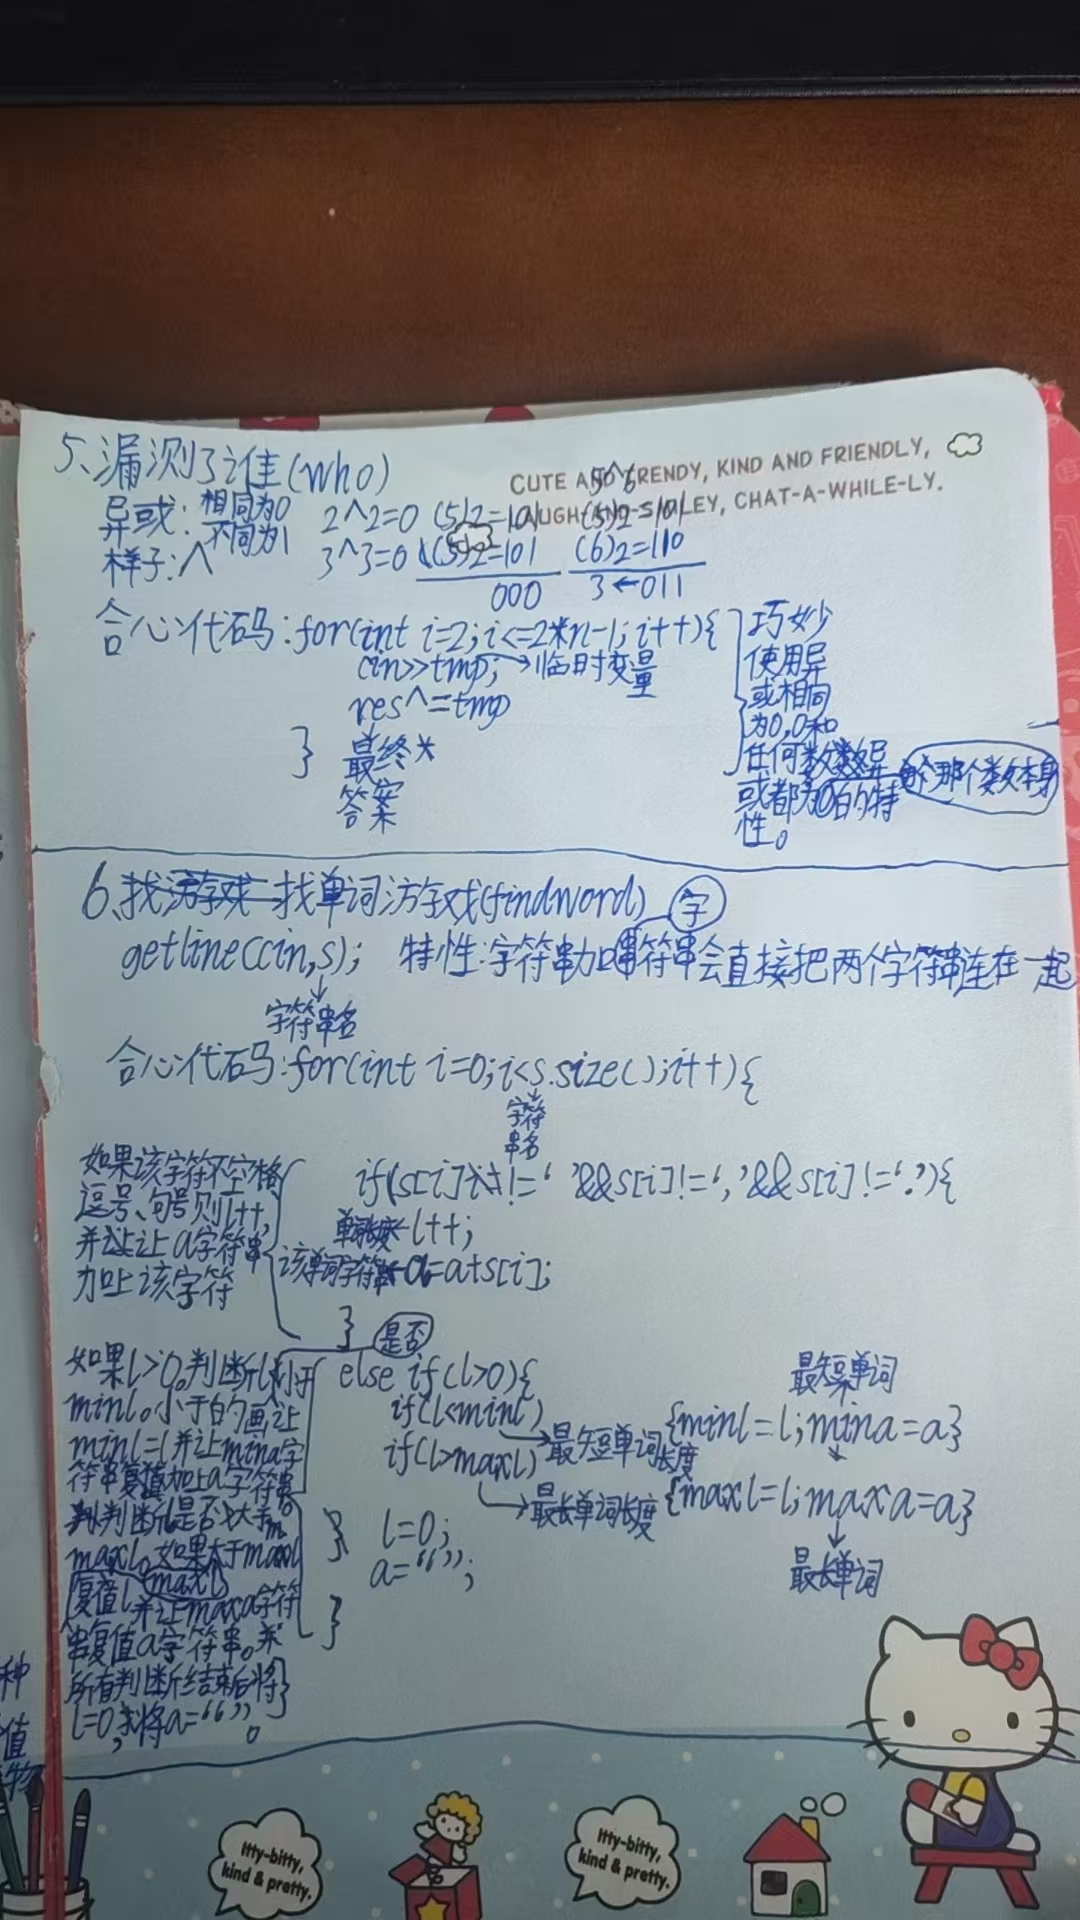 5、漏测了谁(who)
CUTE AND TRENDY, KIND AND FRIENDLY,
LAUGH-AND-SMILEY, CHAT-A-WHILE-LY.
5^6
异或：相同为0
不同为1
2^2=0 (5)2=101 (5)2=101
样子：^ 3^3=0 (5)2=101 (6)2=110
000 3←011
合心代码:for(int i=2;i<=2*n-1;i++){
cin>>tmp;→临时变量
res^=tmp
} 最终
答案
巧妙
使用异
或相同
为0,0和
任何数异
或都为 的特
性。
那个数本身
6、找单词游戏(findword)
字
getline(cin,s); 特性:字符串加字符串会直接把两个字符串连在一起
字符串名
合心代码:for(int i=0;i<s.size();i++){
字符串名
如果该字符不空格
逗号、句号则l++,
并让a字符串
加上该字符
if(s[i]!=' '&&s[i]!=','&&s[i]!='.'){
单词长度←l++;
该单词字符串←a=a+s[i];
}
是否
如果l>0。判断l小于
minl。小于的画让
minl=l并让mina字
符串复值加上a字符串。
判断l是否大于
maxl。如果大于maxl
maxl
复值l并让maxa字符
串复值a字符串。
所有判断结束后将
l=0,将a=“”。
else if(l>0){
if(l<minl) {minl=l;mina=a}
最短单词
最短单词长度
if(l>maxl) {maxl=l;maxa=a}
最长单词长度
最长单词
} l=0;
a=“”;
}
种
值
物
Itty-bitty,
kind & pretty.
Itty-bitty,
kind & pretty.